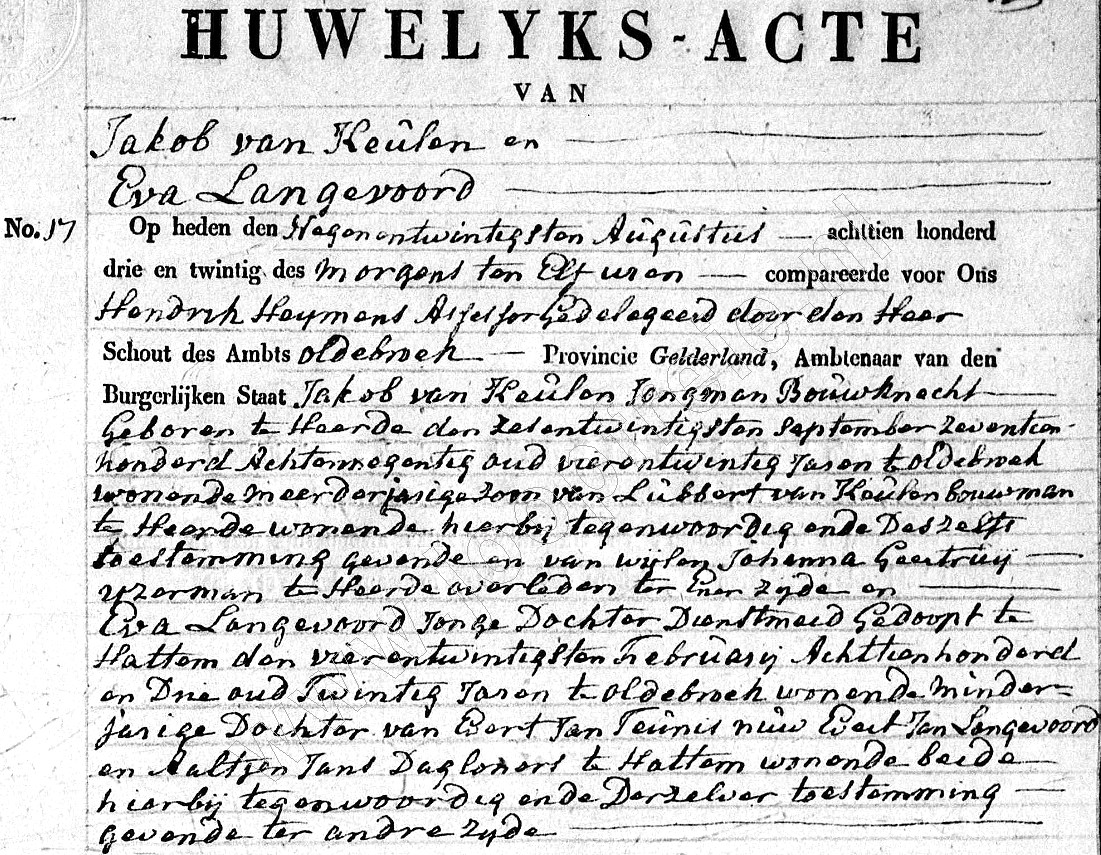 HUWELYKS - ACTE
VAN
Jakob van Keûlen en
Eva Langevoord
No. 17 Op heden den Negenentwintigsten Aûgûstûs — achttien honderd
drie en twintig des morgens ten Elf uren — compareerde voor Ons
Hendrik Heymans Assessor Gedelegeerd door den Heer
Schout des Ambts oldebroek — Provincie Gelderland, Ambtenaar van den
Burgerlijken Staat Jakob van Keûlen Jongman Boûwknecht
Geboren te Heerde den zesentwintigsten September zeventien-
honderd Achtennegentig oud vierentwintig Jaren te oldebroek
wonende meerderjarige zoon van Lûbbert van Keûlen bouwman
te Heerde wonende hierbij tegenwoordig ende Deszelfs
toestemming gevende en van wijlen Johanna Geertruij
yzerman te Heerde overleden ter Ener zyde en
Eva Langevoord Jonge Dochter Dienstmeid Gedoopt te
Hattem den vierentwintigsten Februarij Achttienhonderd
en Drie oud Twintig Jaren te oldebroek wonende minder=
jarige Dochter van Evert Jan Teûnis nûw Evert Jan Langevoord
en Aaltjen Jans Dagloners te Hattem wonende beide
hierbij tegenwoordig ende Derzelver toestemming
gevende ter andre zyde